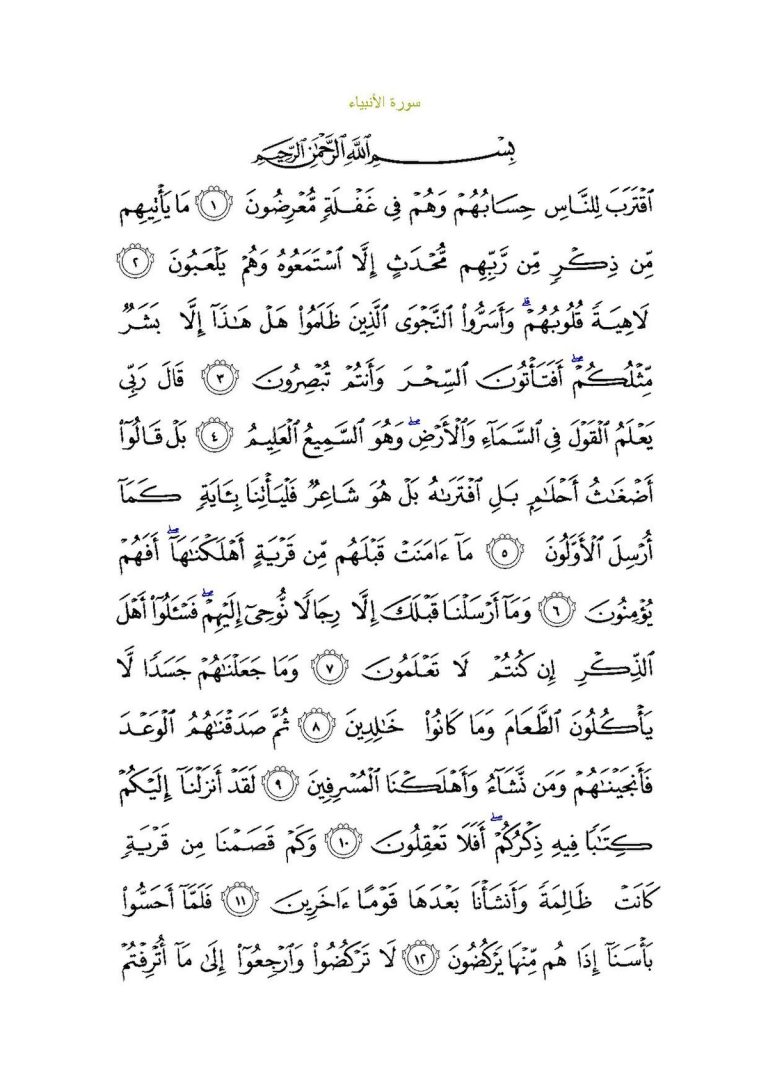 سورة الأنبياء
بِسْمِ ٱللَّهِ ٱلرَّحْمَٰنِ ٱلرَّحِيمِ
ٱقْتَرَبَ لِلنَّاسِ حِسَابُهُمْ وَهُمْ فِى غَفْلَةٍ مُّعْرِضُونَ ١ مَا يَأْتِيهِم
مِّن ذِكْرٍ مِّن رَّبِّهِم مُّحْدَثٍ إِلَّا ٱسْتَمَعُوهُ وَهُمْ يَلْعَبُونَ ٢
لَاهِيَةً قُلُوبُهُمْ ۗ وَأَسَرُّوا۟ ٱلنَّجْوَى ٱلَّذِينَ ظَلَمُوا۟ هَلْ هَٰذَآ إِلَّا بَشَرٌ
مِّثْلُكُمْ ۖ أَفَتَأْتُونَ ٱلسِّحْرَ وَأَنتُمْ تُبْصِرُونَ ٣ قَالَ رَبِّى
يَعْلَمُ ٱلْقَوْلَ فِى ٱلسَّمَآءِ وَٱلْأَرْضِ ۖ وَهُوَ ٱلسَّمِيعُ ٱلْعَلِيمُ ٤ بَلْ قَالُوٓا۟
أَضْغَٰثُ أَحْلَٰمٍۭ بَلِ ٱفْتَرَىٰهُ بَلْ هُوَ شَاعِرٌ فَلْيَأْتِنَا بِـَٔايَةٍ كَمَآ
أُرْسِلَ ٱلْأَوَّلُونَ ٥ مَآ ءَامَنَتْ قَبْلَهُم مِّن قَرْيَةٍ أَهْلَكْنَٰهَآ ۖ أَفَهُمْ
يُؤْمِنُونَ ٦ وَمَآ أَرْسَلْنَا قَبْلَكَ إِلَّا رِجَالًا نُّوحِىٓ إِلَيْهِمْ ۖ فَسْـَٔلُوٓا۟ أَهْلَ
ٱلذِّكْرِ إِن كُنتُمْ لَا تَعْلَمُونَ ٧ وَمَا جَعَلْنَٰهُمْ جَسَدًا لَّا
يَأْكُلُونَ ٱلطَّعَامَ وَمَا كَانُوا۟ خَٰلِدِينَ ٨ ثُمَّ صَدَقْنَٰهُمُ ٱلْوَعْدَ
فَأَنجَيْنَٰهُمْ وَمَن نَّشَآءُ وَأَهْلَكْنَا ٱلْمُسْرِفِينَ ٩ لَقَدْ أَنزَلْنَآ إِلَيْكُمْ
كِتَٰبًا فِيهِ ذِكْرُكُمْ ۖ أَفَلَا تَعْقِلُونَ ١٠ وَكَمْ قَصَمْنَا مِن قَرْيَةٍ
كَانَتْ ظَالِمَةً وَأَنشَأْنَا بَعْدَهَا قَوْمًا ءَاخَرِينَ ١١ فَلَمَّآ أَحَسُّوا۟
بَأْسَنَآ إِذَا هُم مِّنْهَا يَرْكُضُونَ ١٢ لَا تَرْكُضُوا۟ وَٱرْجِعُوٓا۟ إِلَىٰ مَآ أُتْرِفْتُمْ